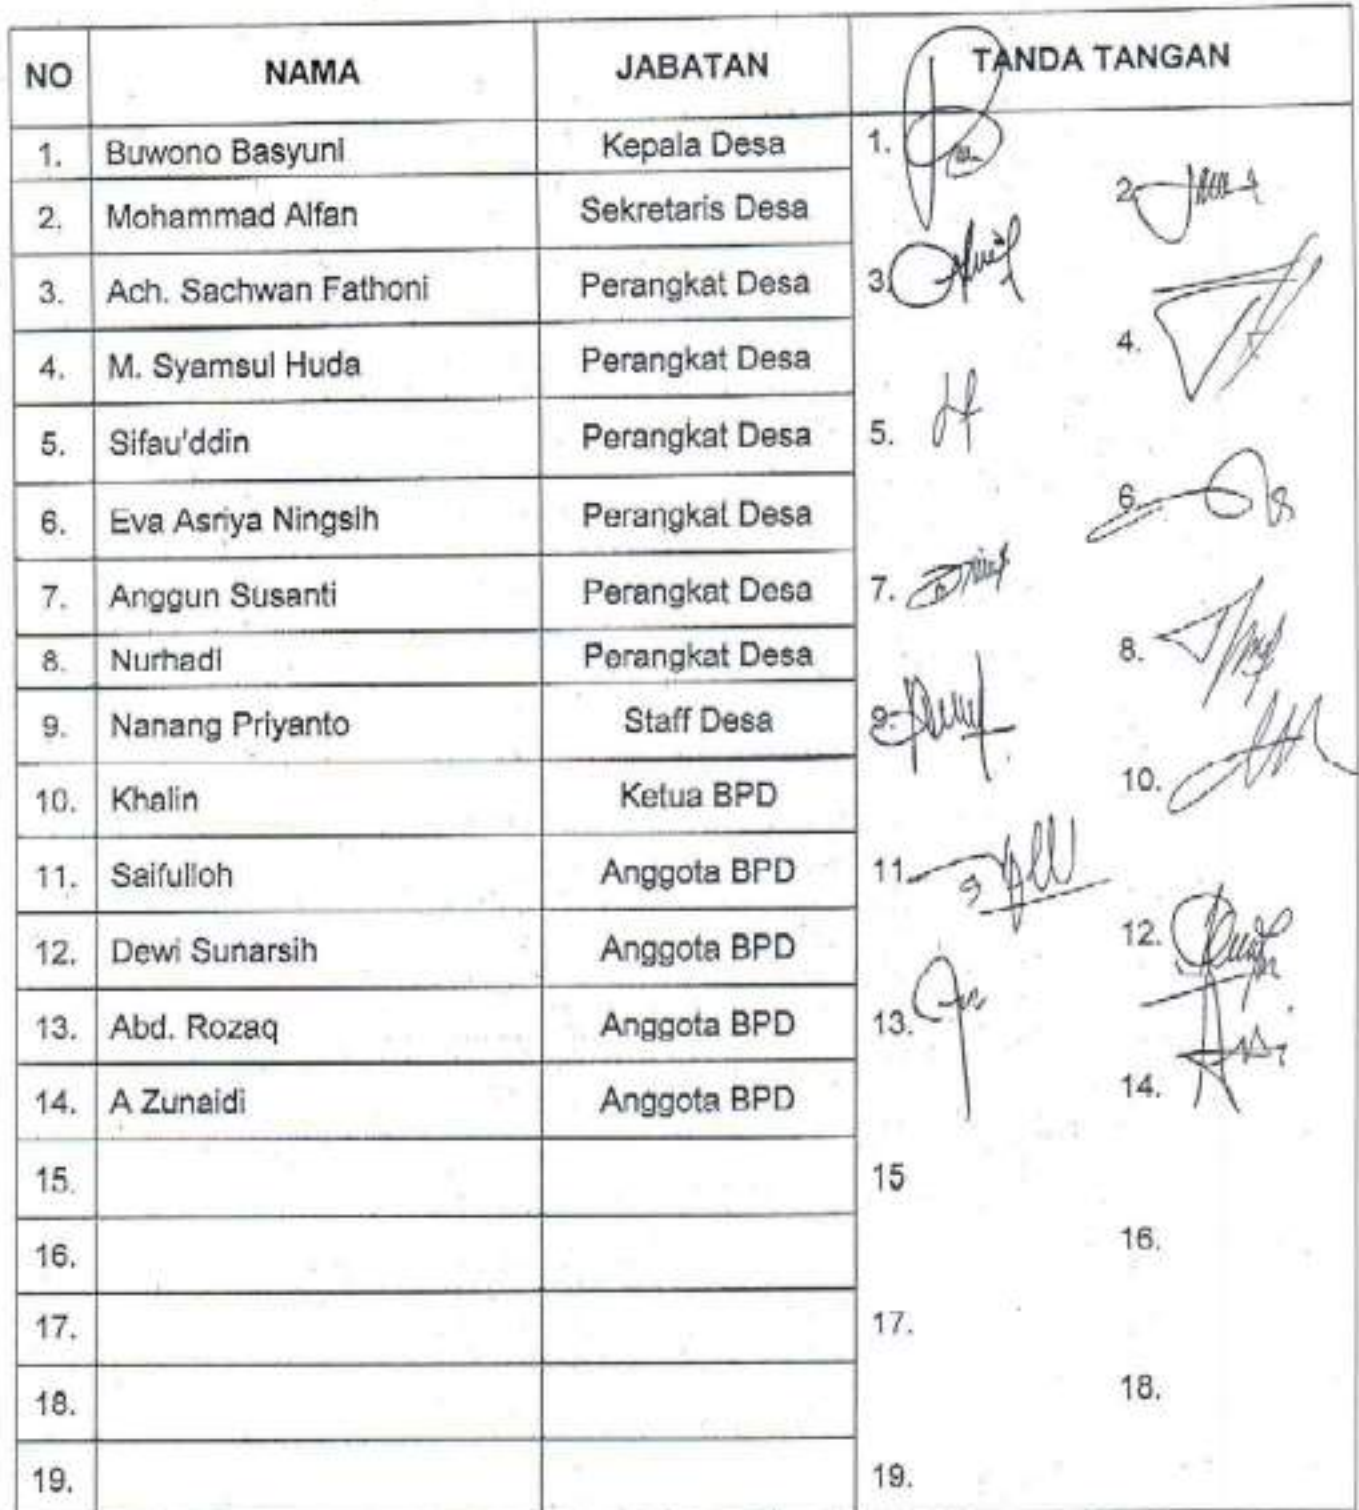 NO NAMA JABATAN TANDA TANGAN
1. Buwono Basyuni Kepala Desa 1.
2. Mohammad Alfan Sekretaris Desa 2.
3. Ach. Sachwan Fathoni Perangkat Desa 3.
4. M. Syamsul Huda Perangkat Desa 4.
5. Sifau'ddin Perangkat Desa 5.
6. Eva Asriya Ningsih Perangkat Desa 6.
7. Anggun Susanti Perangkat Desa 7.
8. Nurhadi Perangkat Desa 8.
9. Nanang Priyanto Staff Desa 9.
10. Khalin Ketua BPD 10.
11. Saifulloh Anggota BPD 11.
12. Dewi Sunarsih Anggota BPD 12.
13. Abd. Rozaq Anggota BPD 13.
14. A Zunaidi Anggota BPD 14.
15. 15
16. 16.
17. 17.
18. 18.
19. 19.